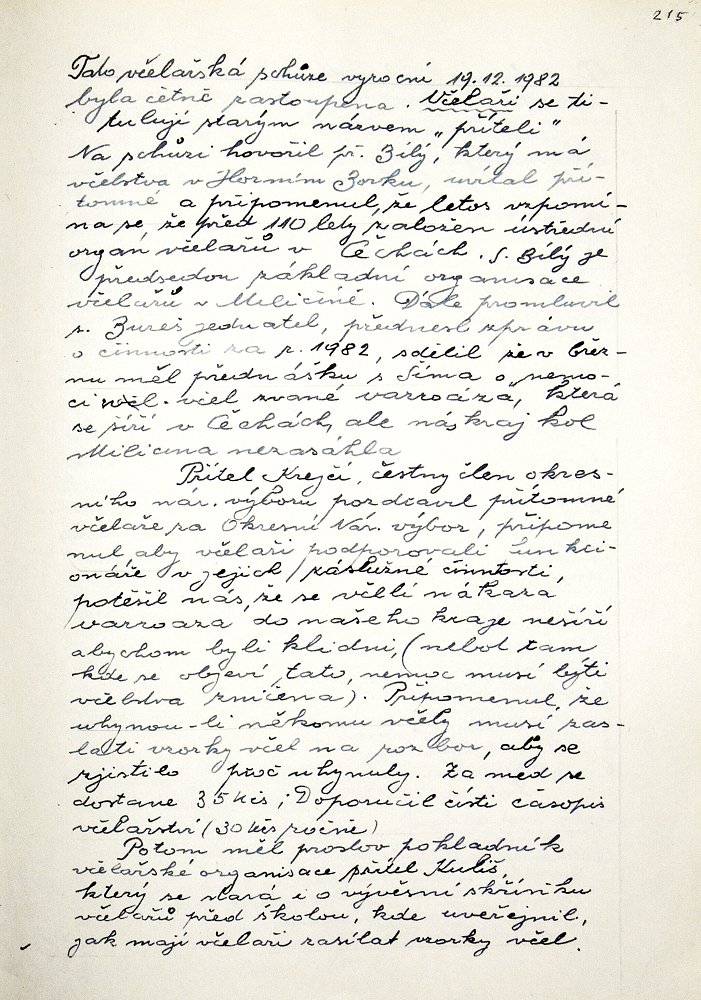 215
Tato včelařská schůze vyroční 19.12.1982
byla četně zastoupena. Včelaři se ti-
tulují starým názvem „příteli"
Na schůzi hovořil př. Bílý, který má
včelstva v Horním Borku, uvítal pří-
tomné a připomenul, že letos vzpomí-
ná se, že před 110 lety založen ústřední
orgán včelařů v Čechách. S. Bílý je
předsedou základní organisace
včelařů v Miličíně. Dále promluvil
s. Bureš jednatel, přednesl zprávu
o činnosti za r. 1982, sdělil že v břez-
nu měl přednášku s Šíma o „nemo-
ci včel zvané varroáza, která
se šíří v Čechách, ale náš kraj kol
Miličína nezasáhla
Přítel Krejčí, čestný člen okres-
ního nár. výboru pozdravil přítomné
včelaře za Okresní Nár. výbor, připome
nul aby včelaři podporovali funkci-
onáře v jejich záslužné činnosti,
potěšil nás, že se včelí nákaza
varroaza do našeho kraje nešíří
abychom byli klidni, (neboť tam
kde se objeví tato, nemoc musí býti
včelstva zničena). Připomenul, že
uhynou-li někomu včely musí zas-
lati vzorky včel na rozbor, aby se
zjistilo proč uhynuly. Za med se
dostane 35 Kčs; Doporučil čísti časopis
včelařství (30 Kčs ročně)
Potom měl proslov pokladník
včelařské organisace přítel Kuliš,
který se stará i o vývěsní skříňku
včelařů před školou, kde uveřejnil,
jak mají včelaři zasílat vzorky včel.